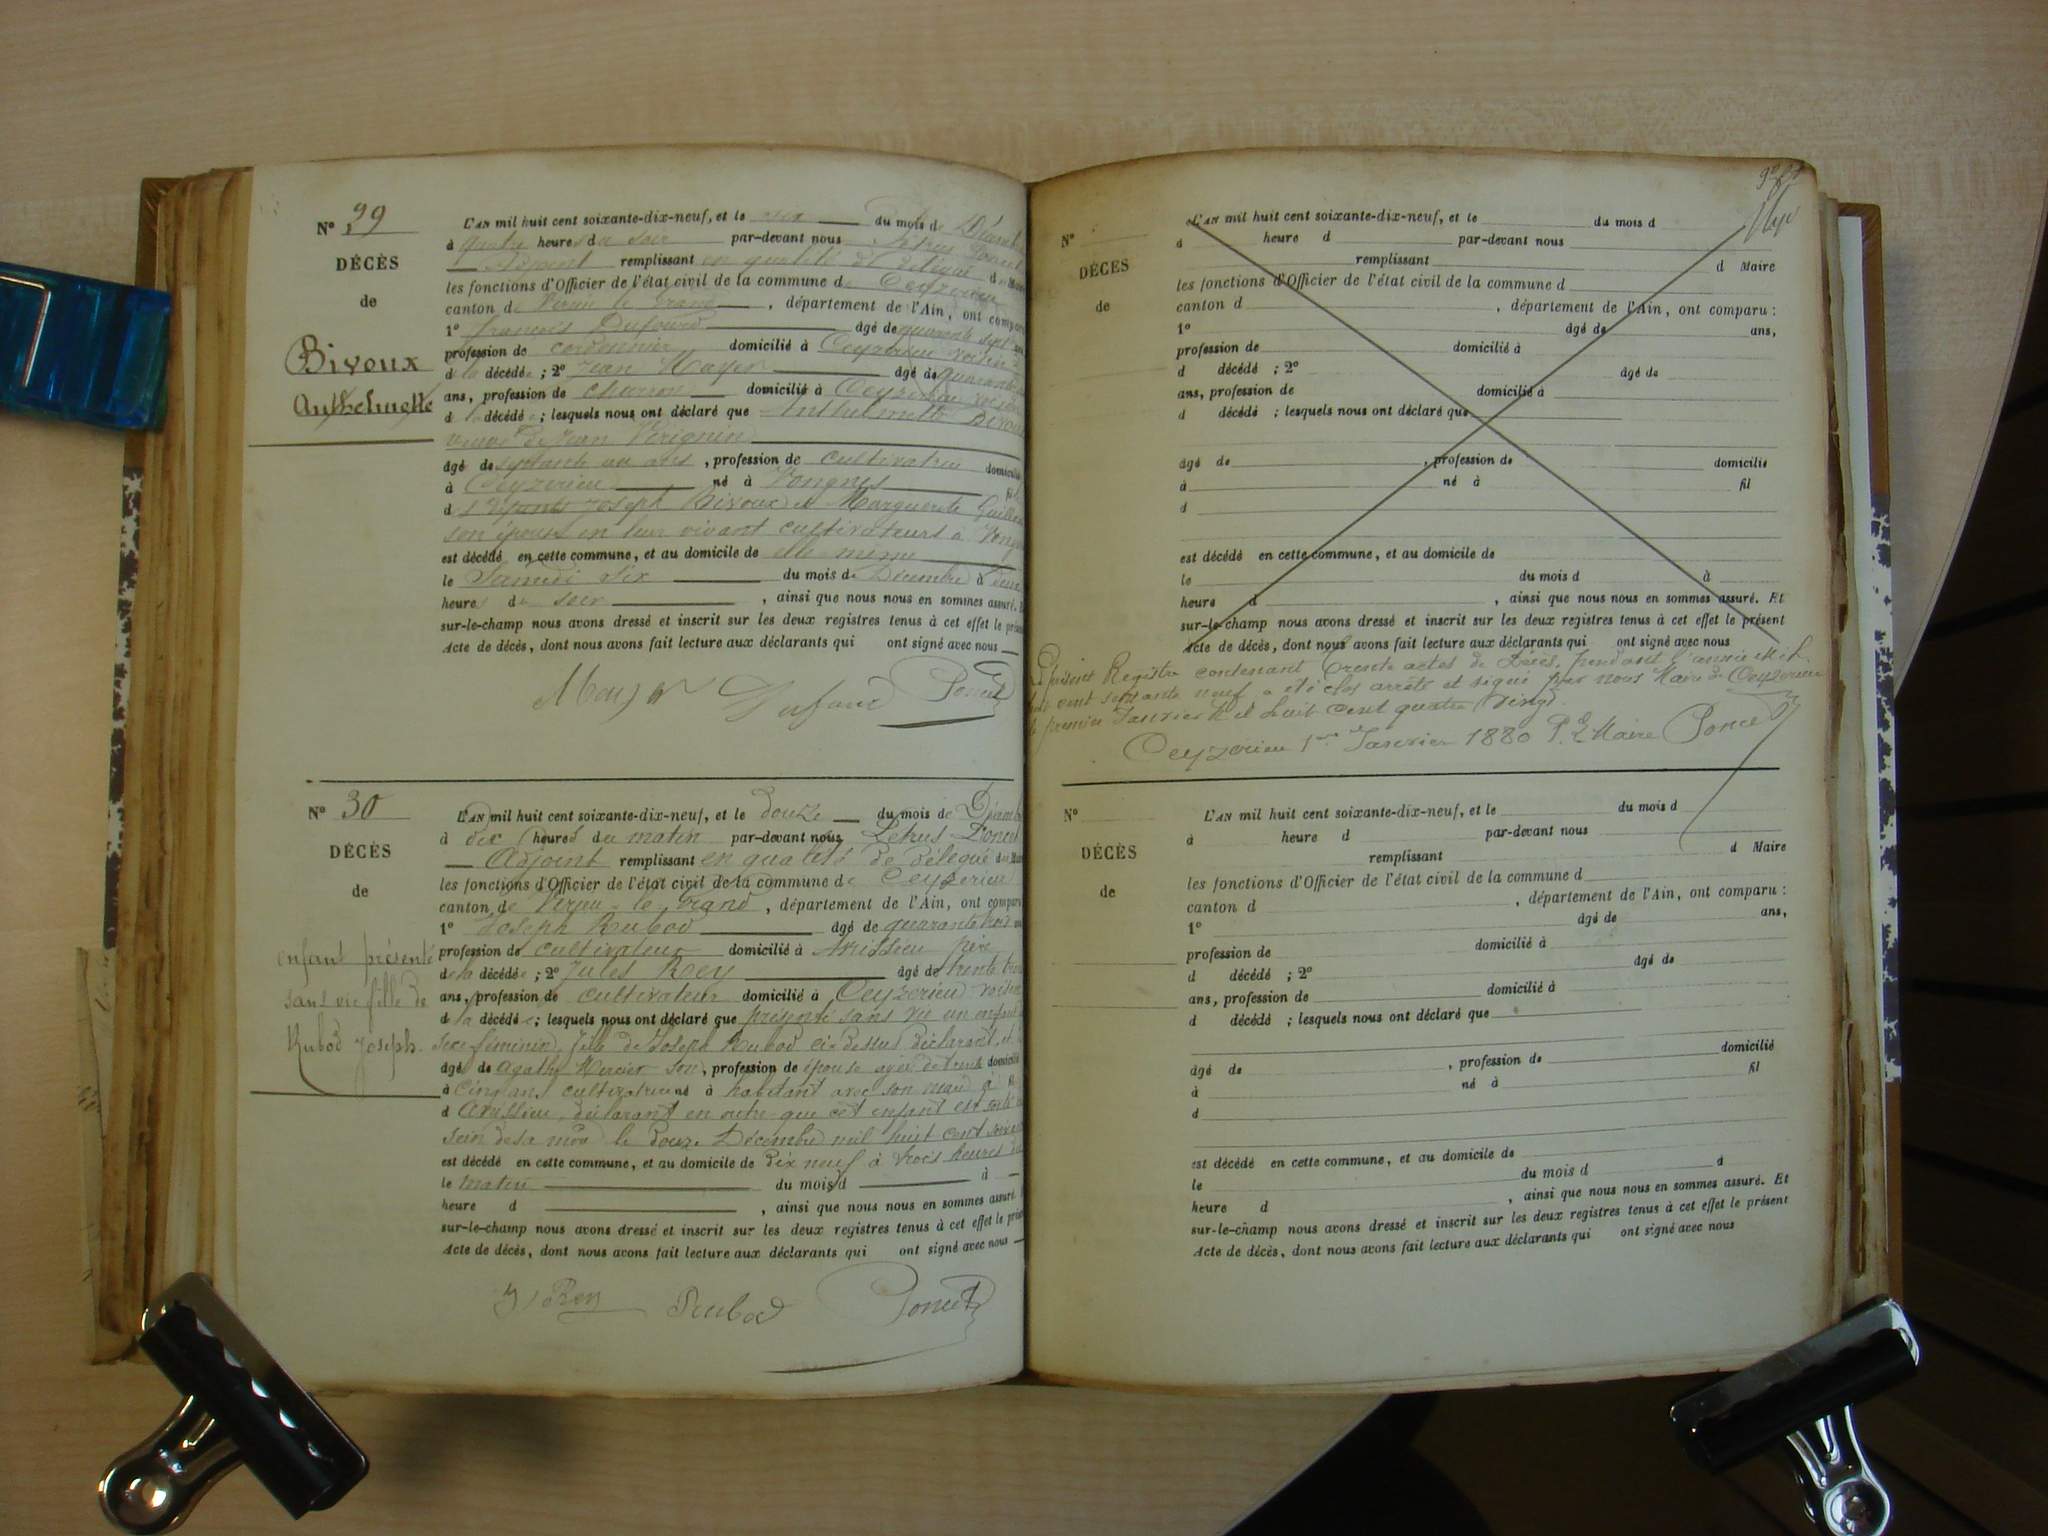 Nº 29
DÉCÈS
de
Bivoux
Anthelmette
L'AN mil huit cent soixante-dix-neuf, et le six du mois de Décembre
à quatre heures du soir par-devant nous Petrus Poncet
Adjoint remplissant en qualité de délégué du Maire
les fonctions d'Officier de l'état civil de la commune de Ceyzerieu
canton de Virieu le Grand, département de l'Ain, ont comparu
1º françois Dufourd âgé de quarante sept ans
profession de cordonnier domicilié à Ceyzerieu voisin
de la décédée; 2º Jean Mayer âgé de quarante
ans, profession de charron domicilié à Ceyzerieu voisin
de la décédée; lesquels nous ont déclaré que Anthelmette Bivoux
veuve de Jean Vérignin
âgé de septante un ans, profession de cultivatrice domicilié
à Ceyzerieu né à Vongnes fil
d défunts Joseph Bivoux et Marguerite
son épouse en leur vivant cultivateurs à
est décédé en cette commune, et au domicile de elle même
le Samedi Six du mois de Décembre à deux
heures du soir, ainsi que nous nous en sommes assuré.
sur-le-champ nous avons dressé et inscrit sur les deux registres tenus à cet effet le
Acte de décès, dont nous avons fait lecture aux déclarants qui ont signé avec nous
Dufourd Poncet
Nº 30
DÉCÈS
de
enfant présenté
sans vie fille de
Rubod Joseph.
L'AN mil huit cent soixante-dix-neuf, et le douze du mois de Décembre
à dix heures du matin par-devant nous Petrus Poncet
Adjoint remplissant en qualité de délégué du Maire
les fonctions d'Officier de l'état civil de la commune de Ceyzerieu
canton de Virieu-le-Grand, département de l'Ain, ont comparu
1º Joseph Rubod âgé de quarante trois
profession de cultivateur domicilié à Avrissieu père
de la décédée; 2º Jules Rey âgé de trente trois
ans, profession de cultivateur domicilié à Ceyzerieu voisin
d la décédée; lesquels nous ont déclaré que présenté sans vie un enfant
sexe féminin, fille de Joseph Rubod ci-dessus déclarant, et
âgé de Agathe Mercier son, profession de épouse agée de trente domicilié
à cinq ans cultivatrice né à habitant avec son mari à
d Avrissieu, déclarant en outre que cet enfant est sorti
sein de sa mère le douze Décembre mil huit cent soixante
est décédé en cette commune, et au domicile de dix neuf à trois heures du
le matin du mois d à
heure d , ainsi que nous nous en sommes assuré.
sur-le-champ nous avons dressé et inscrit sur les deux registres tenus à cet effet le
Acte de décès, dont nous avons fait lecture aux déclarants qui ont signé avec nous
J. Rey Rubod Poncet
Nº
DÉCÈS
de
L'AN mil huit cent soixante-dix-neuf, et le du mois d
à heure d par-devant nous
remplissant d Maire
les fonctions d'Officier de l'état civil de la commune d
canton d , département de l'Ain, ont comparu :
1º âgé de ans,
profession de domicilié à
d décédé ; 2º âgé de
ans, profession de domicilié à
d décédé ; lesquels nous ont déclaré que
âgé de , profession de domicilié
à né à fil
d
est décédé en cette commune, et au domicile de
le du mois d à
heure d , ainsi que nous nous en sommes assuré. Et
sur-le-champ nous avons dressé et inscrit sur les deux registres tenus à cet effet le présent
Acte de décès, dont nous avons fait lecture aux déclarants qui ont signé avec nous
Le présent Registre contenant trente actes de Décès, pendant l'année Mil
huit cent septante neuf a été clos arrêté et signé par nous Maire de Ceyzerieu
le premier Janvier Mil huit cent quatre vingt
Ceyzerieu 1er Janvier 1880 P. Le Maire Poncet
Nº
DÉCÈS
de
L'AN mil huit cent soixante-dix-neuf, et le du mois d
à heure d par-devant nous
remplissant d Maire
les fonctions d'Officier de l'état civil de la commune d
canton d , département de l'Ain, ont comparu :
1º âgé de ans,
profession de domicilié à
d décédé ; 2º âgé de
ans, profession de domicilié à
d décédé ; lesquels nous ont déclaré que
âgé de , profession de domicilié
à né à fil
d
est décédé en cette commune, et au domicile de
le du mois d à
heure d , ainsi que nous nous en sommes assuré. Et
sur-le-champ nous avons dressé et inscrit sur les deux registres tenus à cet effet le présent
Acte de décès, dont nous avons fait lecture aux déclarants qui ont signé avec nous